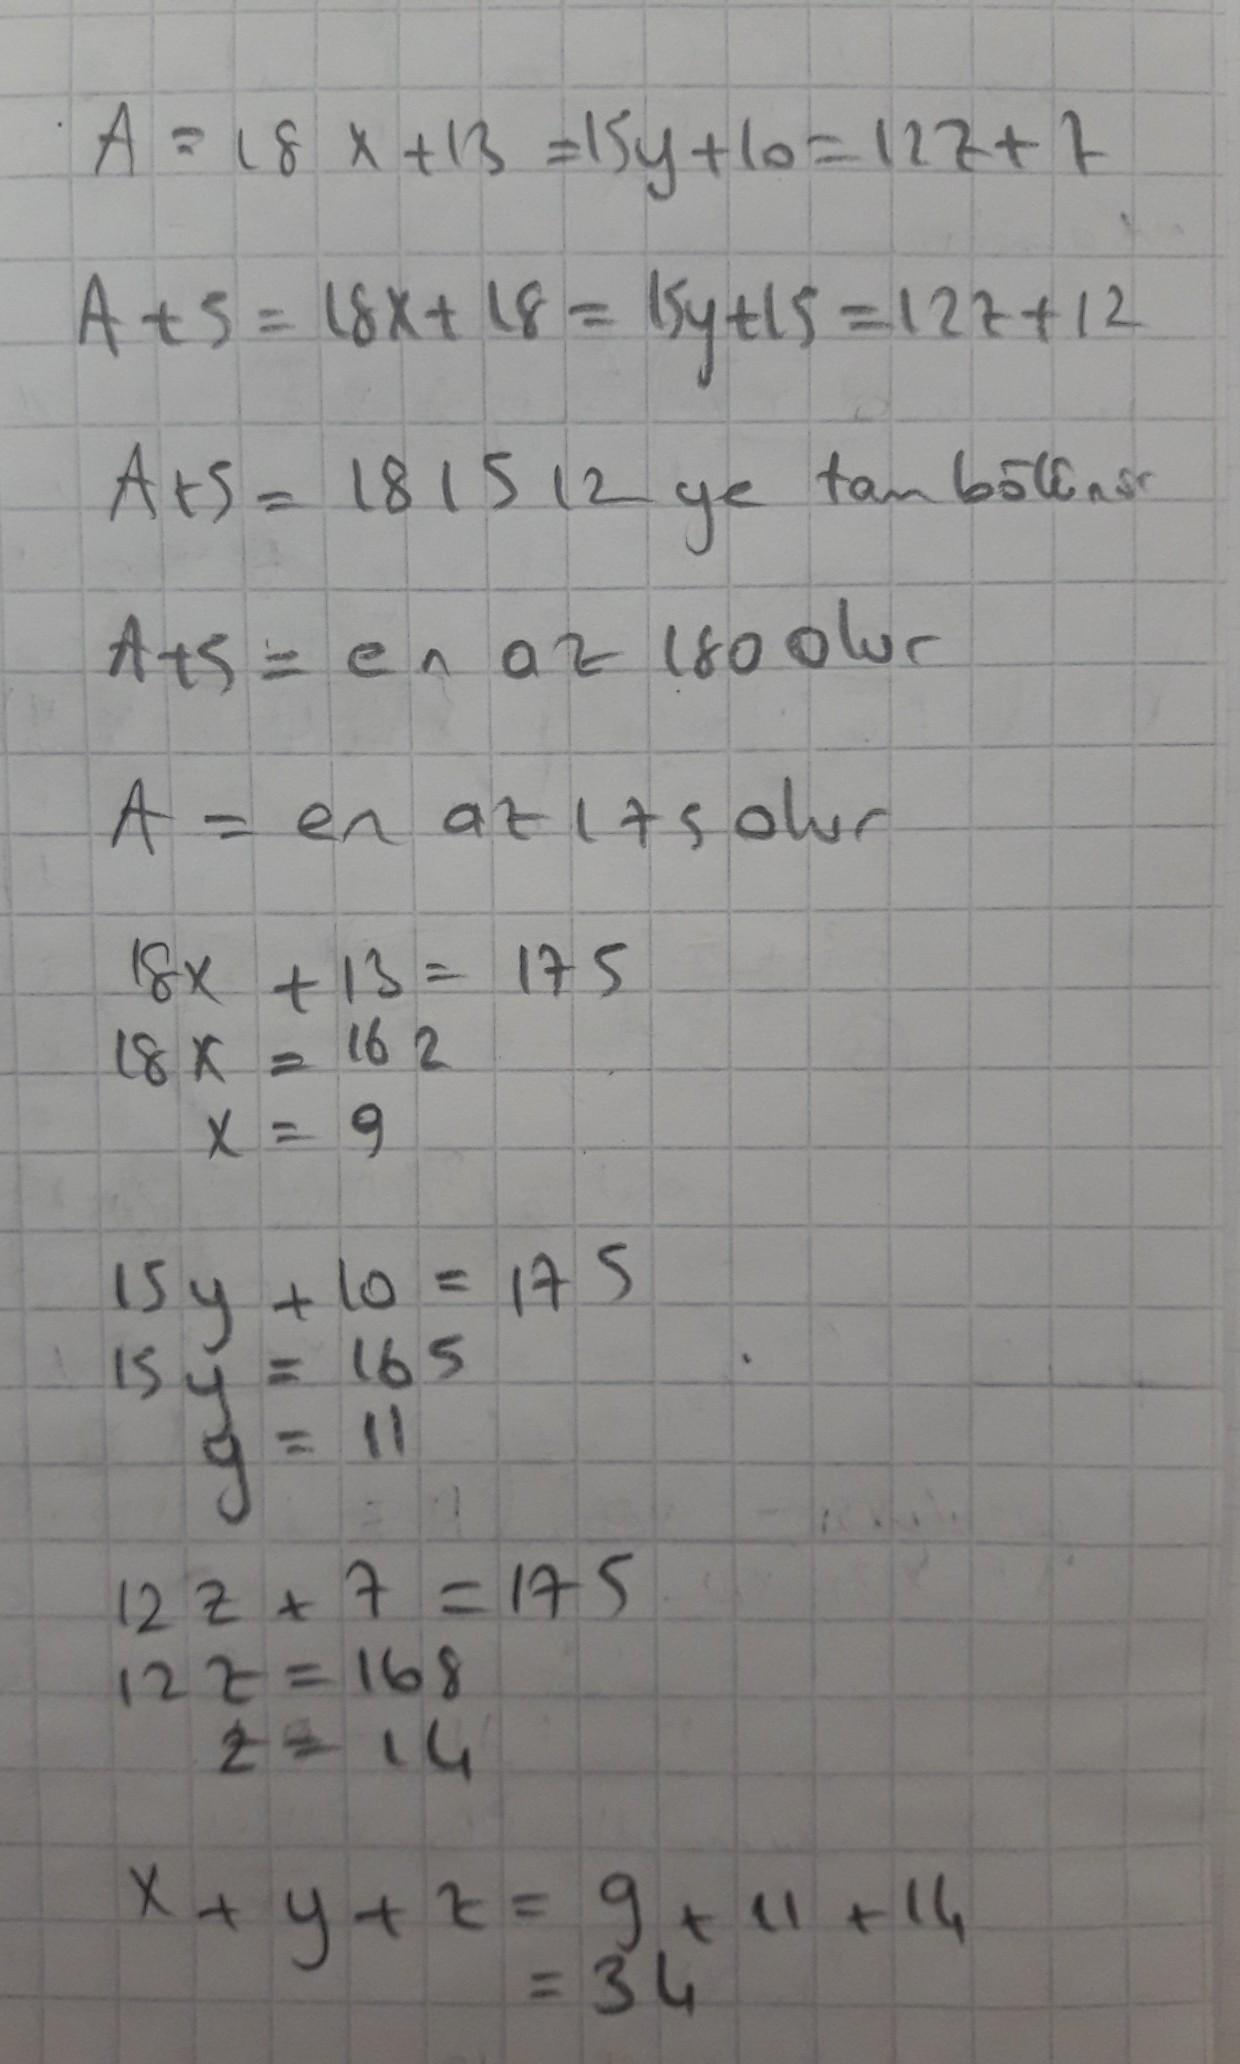 A = 18x+13 = 15y+10 = 12z+7
A+5 = 18x+18 = 15y+15 = 12z+12
A+5 = 18 15 12 ye tam bölünür
A+5 = en az 180 olur
A = en az 175 olur
18x + 13 = 175
18x = 162
x = 9
15y + 10 = 175
15y = 165
y = 11
12z + 7 = 175
12z = 168
z = 14
x + y + z = 9 + 11 + 14
= 34